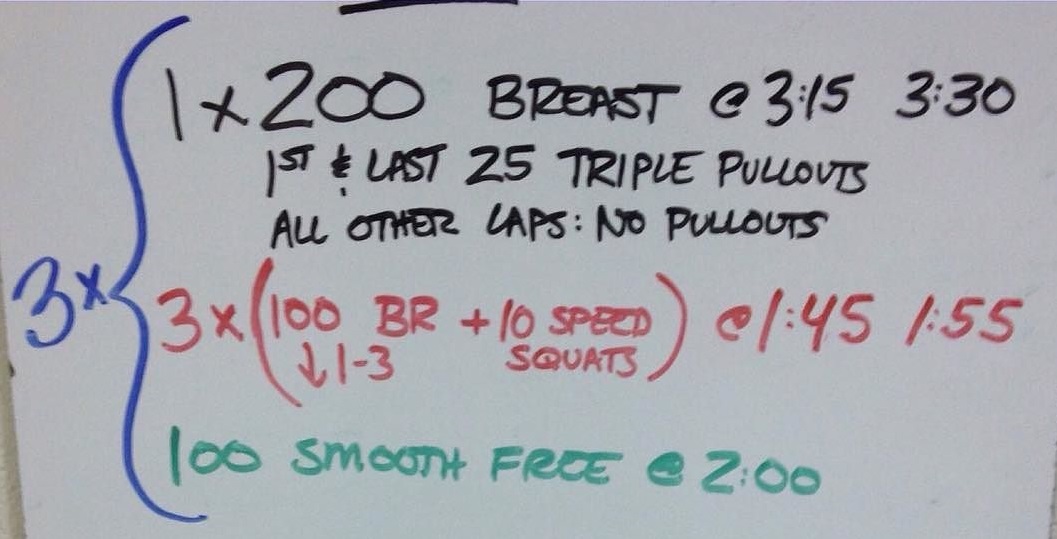 3x
1 x 200 BREAST @ 3:15 3:30
1ST & LAST 25 TRIPLE PULLOUTS
ALL OTHER LAPS: NO PULLOUTS
3 x (100 BR + 10 SPEED) @ 1:45 1:55
↓1-3 SQUATS
100 SMOOTH FREE @ 2:00